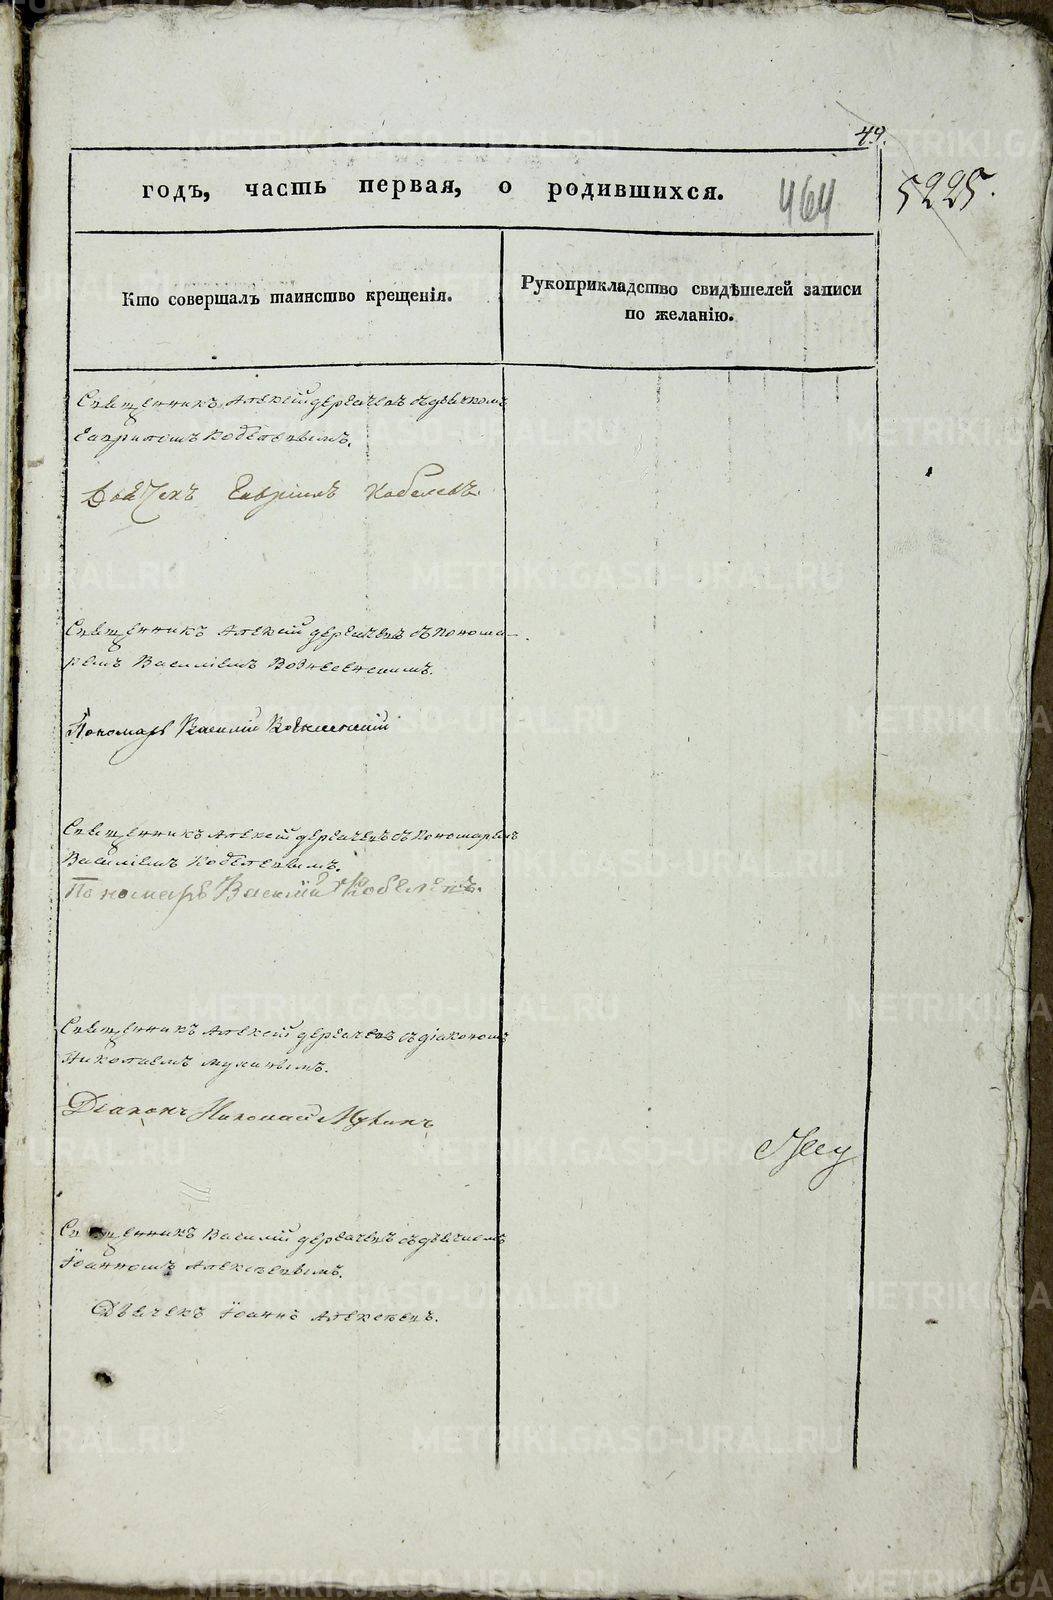 49.
годъ, часть первая, о родившихся.
464
5225.
Кто совершалъ таинство крещенія.
Рукоприкладство свидѣтелей записи
по желанію.
Священникъ Алексей Дерябинъ съ дьячкомъ
Гавриломъ Кобелевымъ.
Дьячекъ Гавріилъ Кобелевъ.
Священникъ Алексей съ понома-
ремъ Василіемъ Вознесенскимъ.
Пономарь Василій Вознесенскій
Священникъ Алексей съ пономаремъ
Василіемъ Кобелевымъ.
Пономарь Василій Кобелевъ.
Священникъ Алексей съ діакономъ
Николаемъ Мукинымъ.
Діаконъ Николай Мукинъ
Священникъ Василій съ дьячкомъ
Іоанномъ Алексѣевымъ.
Дьячекъ Іоаннъ Алексѣевъ.
METRIKI.GASO-URAL.RU